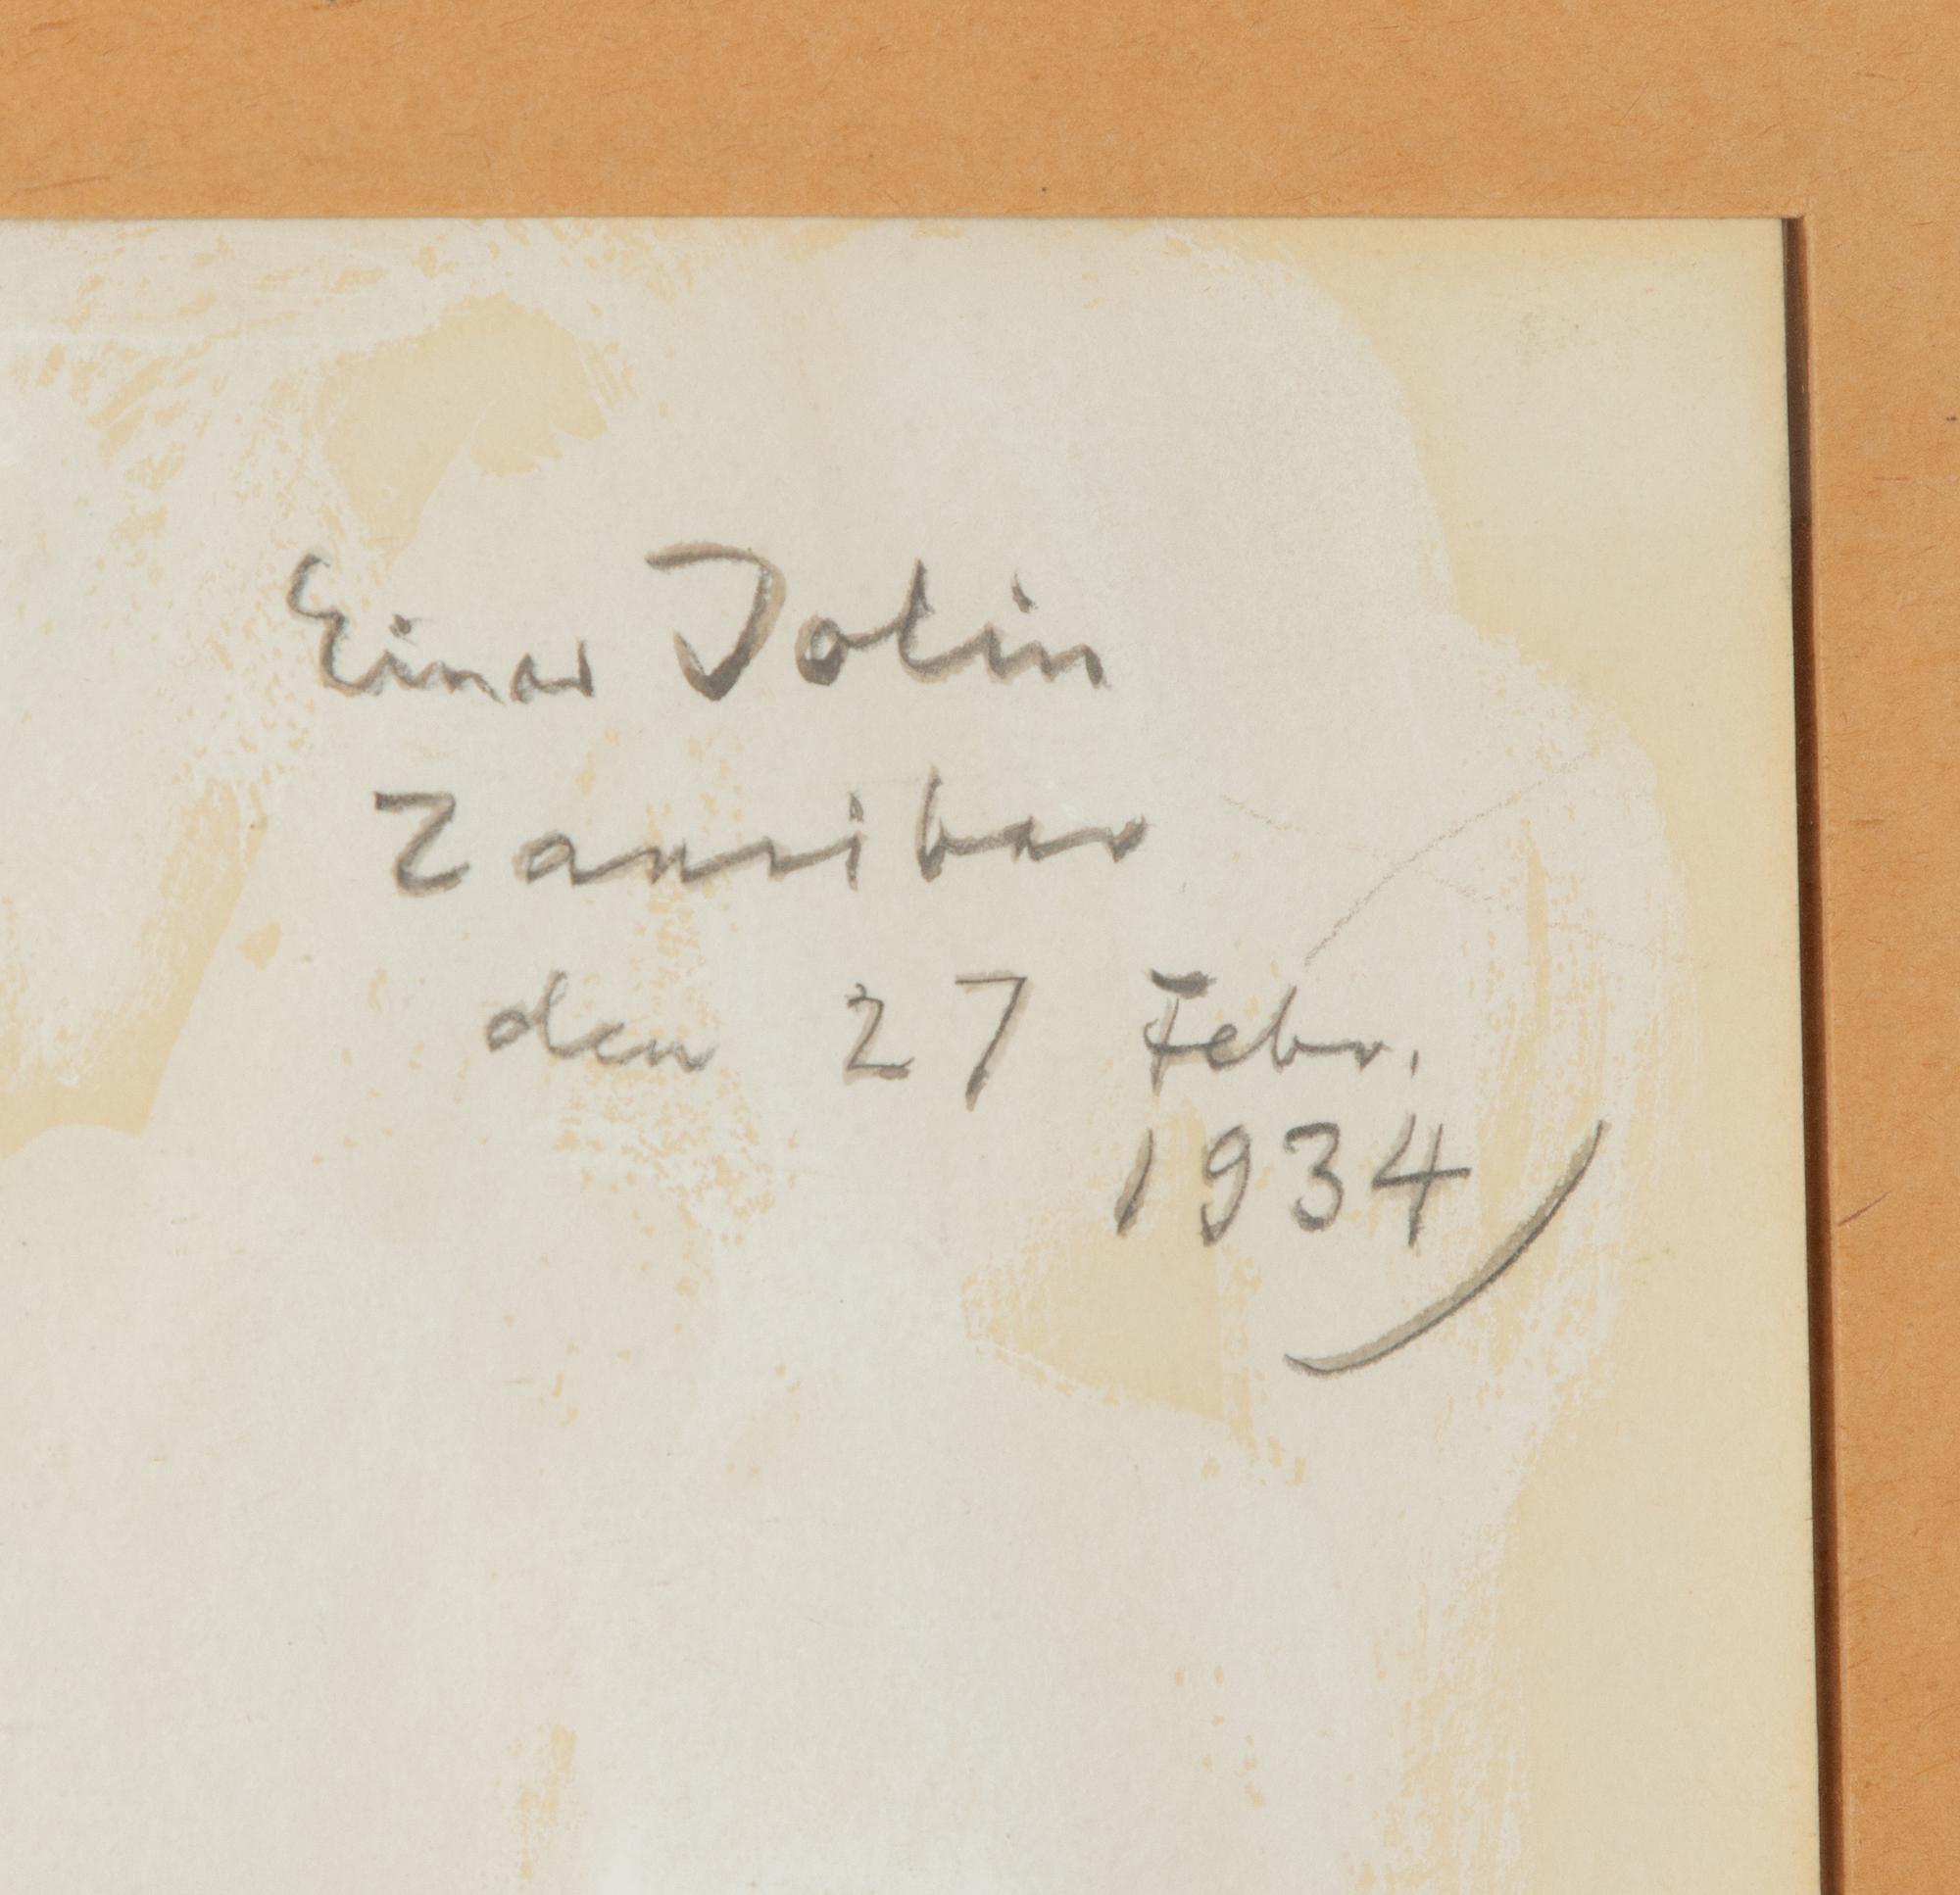 Einar Jolin
Zansibar
den 27 Febr.
1934